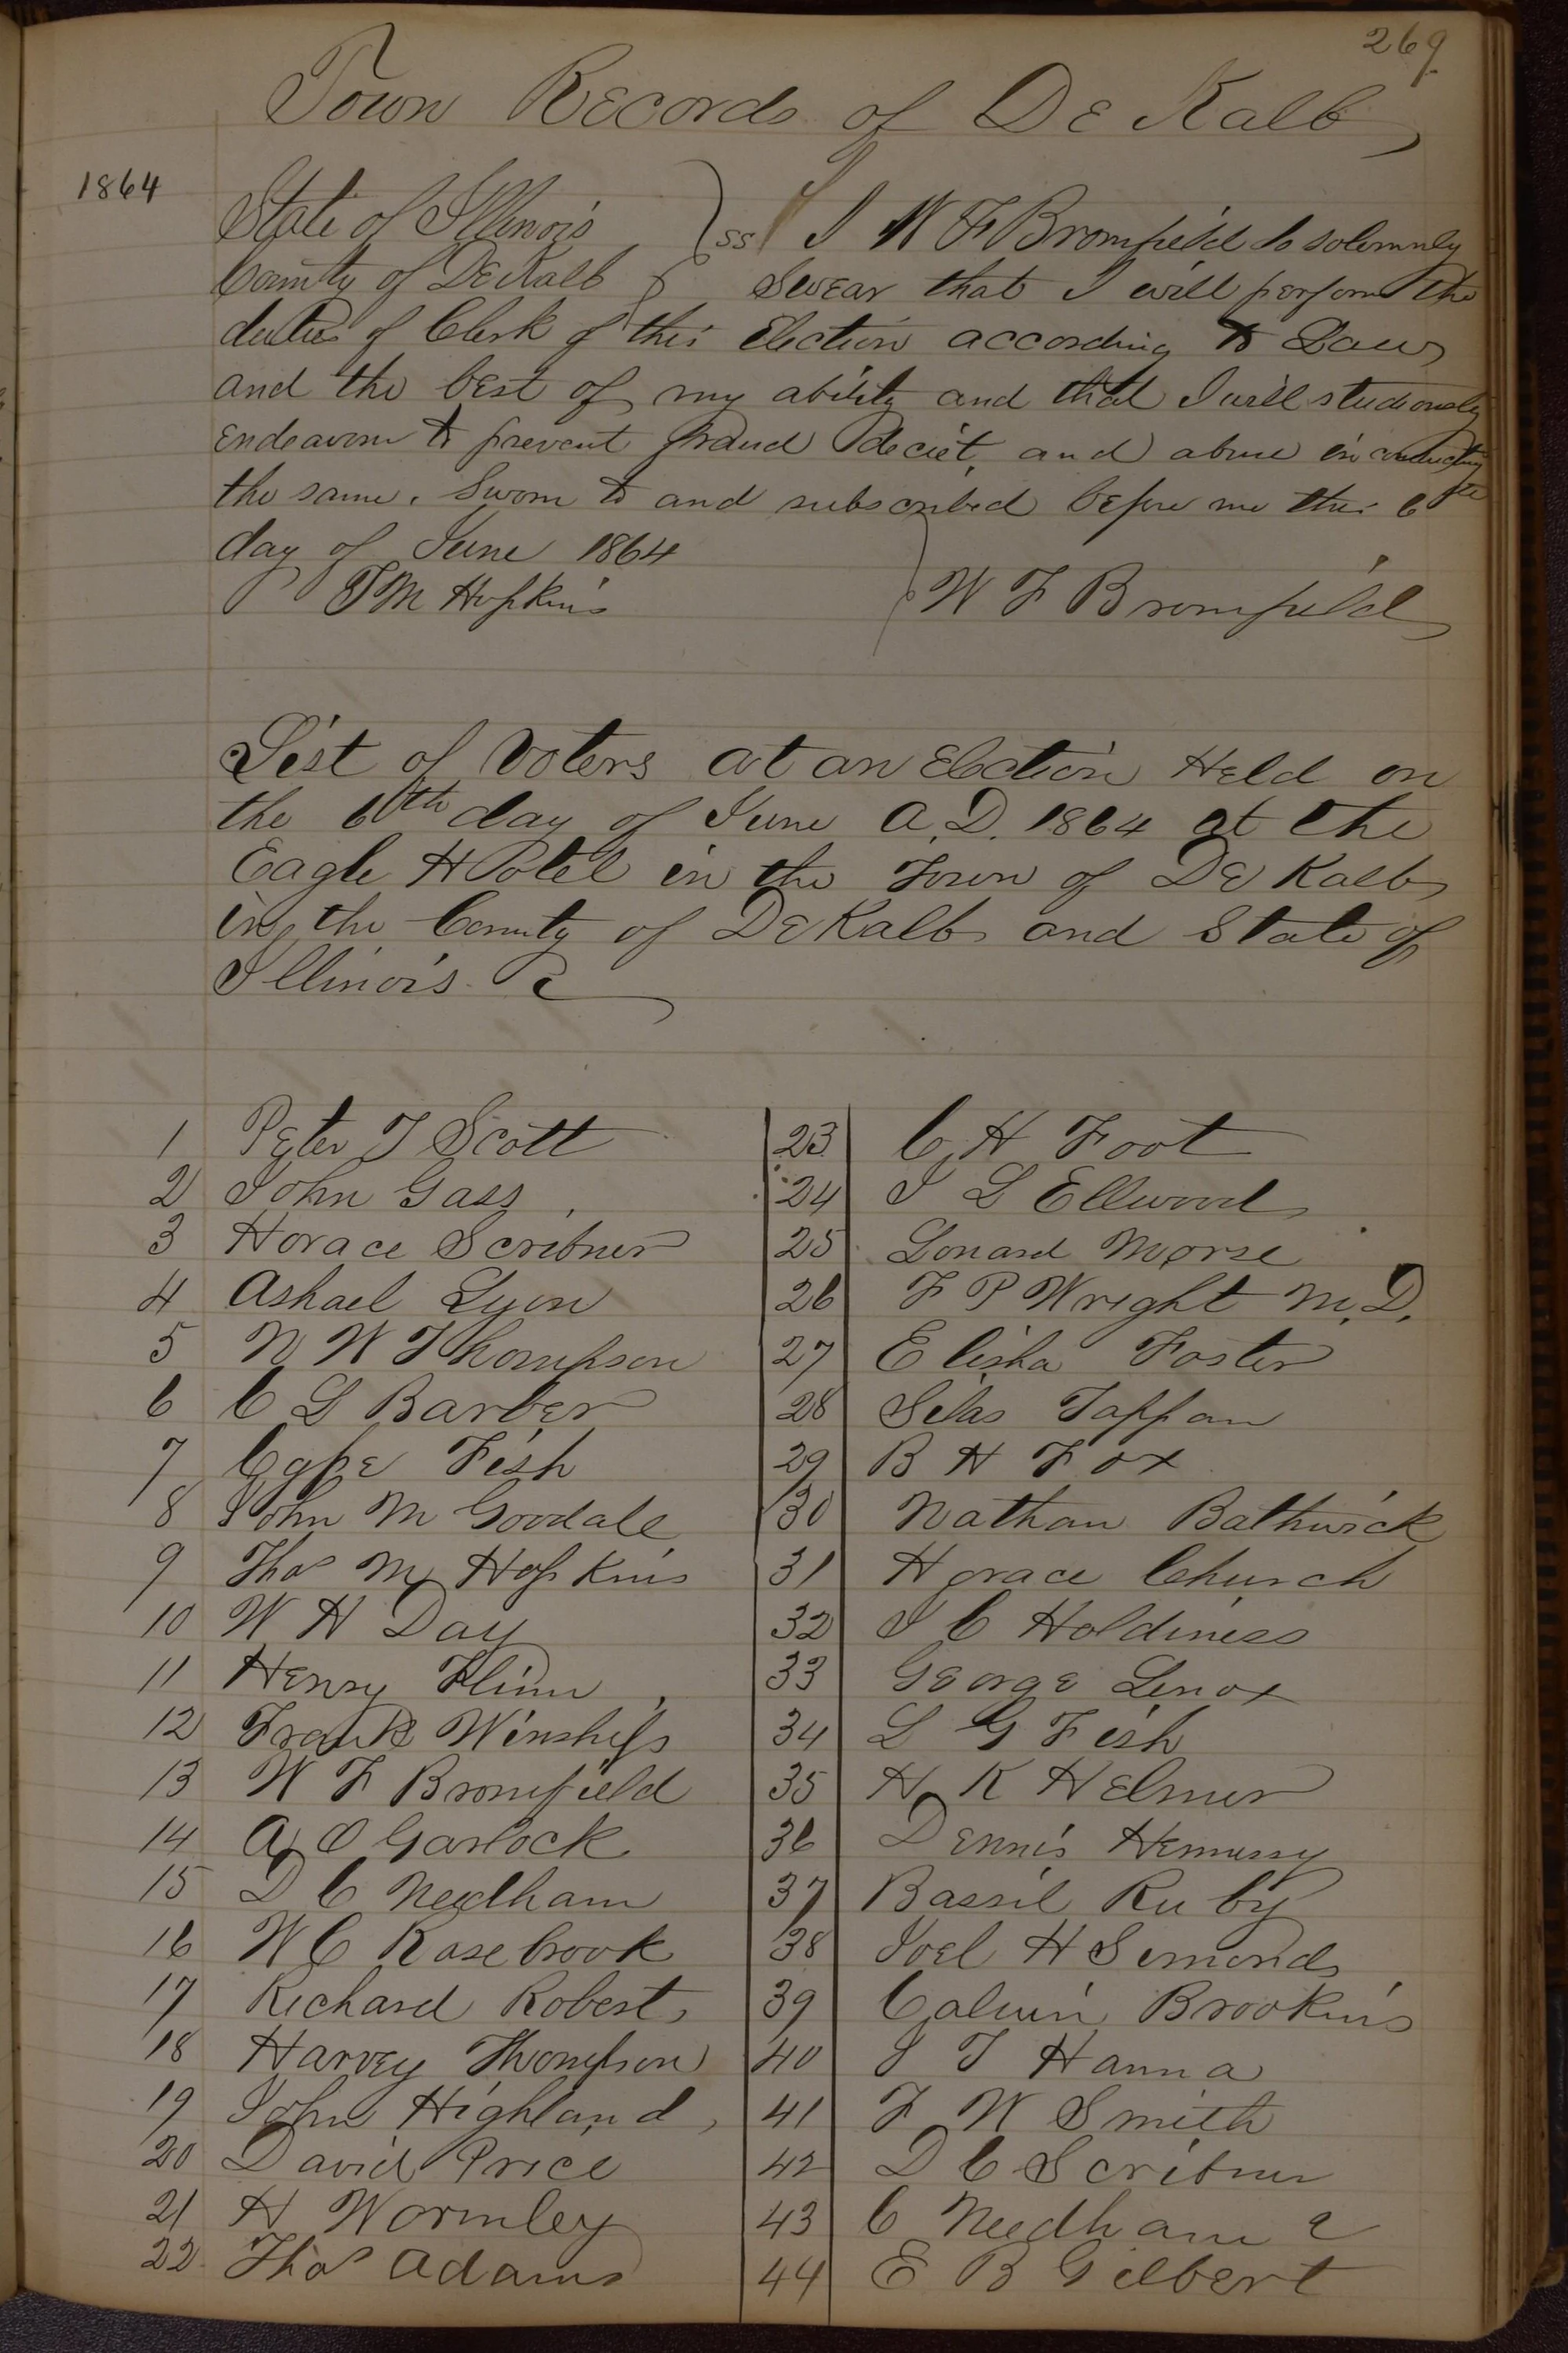 269
Town Records of DeKalb
1864
State of Illinois } ss I W F Bromfield do solemnly
County of DeKalb } Swear that I will perform the
duties of Clerk of this Election according to Law
and the best of my ability and that I will studiously
endeavour to prevent fraud deciet, and abuse in conducting
the same. Sworn to and subscribed before me this 6th
day of June 1864
T M Hopkins } W F Bromfield
List of Voters at an Election Held on
the 6th day of June A.D. 1864 at the
Eagle Hotel in the Town of De Kalb
in the County of DeKalb and State of
Illinois.
1 Peter T Scott
2 John Gass
3 Horace Scribner
4 Ashael Lyon
5 N W Thompson
6 C L Barber
7 Fish
8 John M Goodale
9 Thos M Hopkins
10 W H Day
11 Henry Flinn
12 Frank Winship
13 W F Bromfield
14 A O Garlock
15 D C Needham
16 W C Rosebrook
17 Richard Roberts
18 Harvey Thompson
19 John Highland
20 David Price
21 H Wormley
22 Thos Adams
23 C H Foot
24 I L Ellwood
25 Lonard Morse
26 F P Wright M.D.
27 Elisha Foster
28 Silas Tappan
29 B H Fox
30 Nathan Bathwick
31 Horace Church
32 J C Holdiness
33 George Lenox
34 L G Fish
35 H K Helmer
36 Dennis Hennessy
37 Bassil Ruby
38 Joel H Simonds
39 Calvin Brookins
40 J T Hanna
41 F W Smith
42 D C Scribner
43 C Needham
44 E B Gilbert